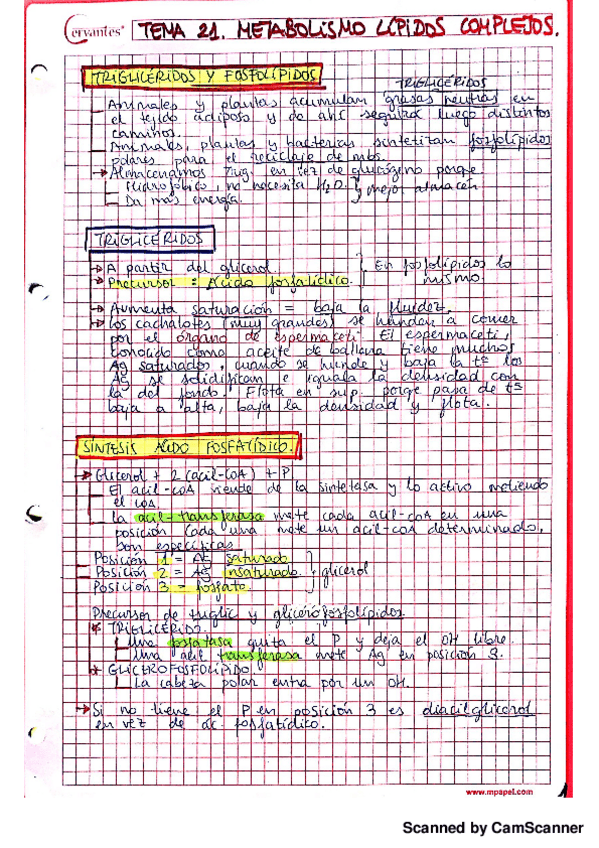 Cervantes® TEMA 21. METABOLISMO LÍPIDOS COMPLEJOS.
TRIGLICÉRIDOS Y FOSFOLÍPIDOS
TRIGLICÉRIDOS
Animales y plantas acumulan grasas neutras en
el tejido adiposo y de ahí seguirá luego distintos
caminos.
Animales, plantas y bacterias sintetizan fosfolípidos
polares para el reciclaje de mbs.
→ Almacenamos Trig. en vez de glucógeno porque:
Hidrofóbico, no necesita H2O. } mejor almacén
Da más energía.
TRIGLICÉRIDOS
→ A partir del glicerol } En fosfolípidos lo
→ Precursor = Ácido fosfatídico. mismo.
→ Aumenta saturación = baja la fluidez.
→ Los cachalotes (muy grandes) se hunden a comer
por el órgano de espermaceti. El espermaceti,
conocido como aceite de ballena tiene muchos
Ag saturados, cuando se hunde y baja la tª los
Ag se solidifican e iguala la densidad con
la del fondo. Flota en sup. porqe pasa de tª
baja a alta, baja la densidad y flota.
SÍNTESIS ÁCIDO FOSFATÍDICO.
→ Glicerol + 2 (acil-CoA) + P
El acil-CoA viene de la sintetasa y lo activo metiendo
el CoA.
La acil-transferasa mete cada acil-CoA en una
posición. Cada una mete un acil-CoA determinado,
son específicas.
Posición 1 = AG saturado
Posición 2 = Ag insaturado. } glicerol
Posición 3 = fosfato.
Precursor de triglic y glicerofosfolípidos.
* TRIGLICÉRIDO
Una fosfatasa quita el P y deja el OH libre.
Una acil transferasa mete Ag en posición 3.
* GLICEROFOSFOLÍPIDO
La cabeza polar entra por un OH.
→ Si no tiene el P en posición 3 es diacilglicerol
en vez de ác fosfatídico.
www.mpapel.com
Scanned by CamScanner